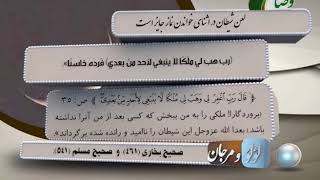 لعن شیطان در اثنای خواندن نماز جایز است
(رب هب لي ملكا لا ينبغي لأحد من بعدي) فرده خاسئا».
﴿ قَالَ رَبِّ اغْفِرْ لِي وَهَبْ لِي مُلْكًا لَّا يَنبَغِي لِأَحَدٍ مِّنْ بَعْدِي ﴾ ص: ٣٥
(پروردگارا! ملکی را به من ببخش که کسی بعد از من آنرا نداشته
باشد) بعدا الله عزوجل این شیطان را ناامید و رانده شده برگرداند».
صحیح بخاری (۴۶۱) و صحیح مسلم (۵۴۱)
لؤلؤ و مرجان